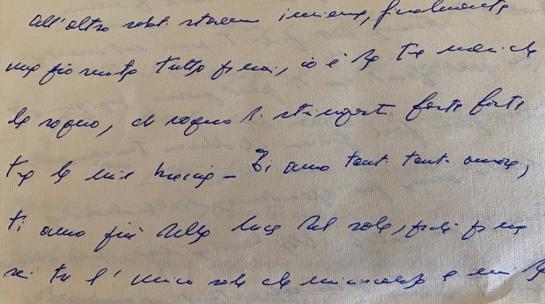 all'altro staremo insieme, finalmente
una giornata tutta per noi, io e te
che sogno, che sogno di stringerti forte forte
tra le mie braccia - Ti amo tanto tanto amore,
ti amo più della luce del sole, perché per me
sei tu l'unico sole che mi